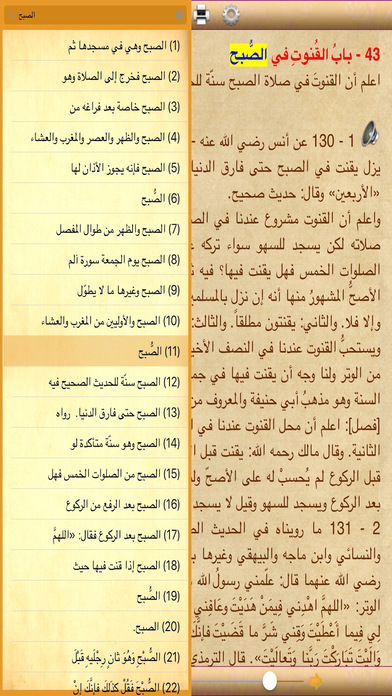 43 - بابُ القُنوتِ في الصُّبح
اعلم أن القنوتَ في صلاة الصبح سنّة للـ
1 - 130 عن أنس رضي الله عنه -
يزل يقنت في الصبح حتى فارق الدنيا
«الأربعين» وقال: حديث صحيح.
واعلم أن القنوت مشروع عندنا في الصـ
صلاته لكن يسجد للسهو سواء تركه ع
الصلوات الخمس فهل يقنت فيها؟ فيه ثـ
الأصحُّ المشهورُ منها أنه إن نزل بالمسلمين
وإلا فلا. والثاني: يقنتون مطلقاً. والثالث:
ويستحبُّ القنوت عندنا في النصف الأخيـ
من الوتر ولنا وجه أن يقنت فيها في جمـ
السنة وهو مذهبُ أبي حنيفة والمعروف من
[فصل]: اعلم أن محل القنوت عندنا في الـ
الثانية. وقال مالك رحمه الله: يقنت قبل الـ
قبل الركوع لم يُحسبْ له على الأصحّ ولـ
بعد الركوع ويسجد للسهو وقيل لا يسجد
2 - 131 ما رويناه في الحديث الصـ
والنسائي وابن ماجه والبيهقي وغيرها بـ
رضي الله عنهما قال: علّمني رسولُ الله ﷺ
الوتر: «اللهمَّ اهْدِني فِيمَنْ هَدَيْتَ وَعَافِني
لي فِيما أَعْطَيْتَ وَقِني شَرَّ ما قَضَيْتَ فإنَّكَ
وَالَيْتَ تَبارَكْتَ رَبَّنا وَتَعالَيْتَ». قال الترمذي
الصبح
(1) الصبح وهي في مسجدها ثم
(2) الصبح فخرج إلى الصلاة وهو
(3) الصبح خاصة بعد فراغه من
(4) الصبح والظهر والعصر والمغرب والعشاء
(5) الصبح فإنه يجوز الأذان لها
(6) الصُّبح
(7) الصبح والظهر من طوال المفصل
(8) الصبح يوم الجمعة سورة الم
(9) الصبح وغيرها ما لا يطوّل
(10) الصبح والأوليين من المغرب والعشاء
(11) الصُّبح
(12) الصبح سنّة للحديث الصحيح فيه
(13) الصبح حتى فارق الدنيا. رواه
(14) الصبح وهو سنّة متأكدة لو
(15) الصبح من الصلوات الخمس فهل
(16) الصبح بعد الرفع من الركوع
(17) الصبح بعد الركوع فقال: «اللهمَّ
(18) الصبح إذا قنت فيها حيث
(19) الصُّبح
(20) الصبح.
(21) الصُّبْحِ وَهُوَ ثانٍ رِجْلَيْهِ قَبْلَ
(22) الصُّبْحَ فَقُلْ كَذَلكَ فإنَّكَ إنْ